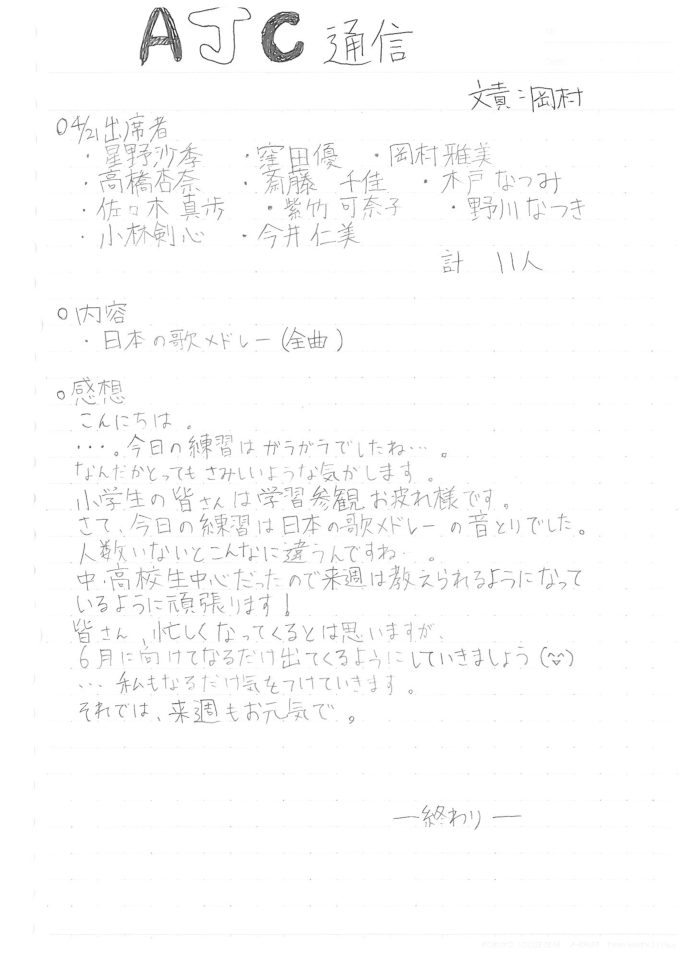 AJC 通信
文責:岡村
○4/21出席者
・星野沙季 ・窪田優 ・岡村雅美
・高橋杏奈 ・斎藤 千佳 ・木戸なつみ
・佐々木真歩 ・紫竹可奈子 ・野川なつき
・小林剣心 ・今井仁美
計 11人
○内容
・日本の歌メドレー(全曲)
○感想
こんにちは。
・・・。今日の練習はガラガラでしたね…。
なんだかとってもさみしいような気がします。
小学生の皆さんは学習参観お疲れ様です。
さて、今日の練習は日本の歌メドレーの音とりでした。
人数いないとこんなに違うんですね…。
中・高校生中心だったので来週は教えられるようになって
いるように頑張ります!
皆さん、忙しくなってくるとは思いますが、
6月に向けてなるだけ出てくるようにしていきましょう(^^)
… 私もなるだけ気をつけていきます。
それでは、来週もお元気で。
―終わり―